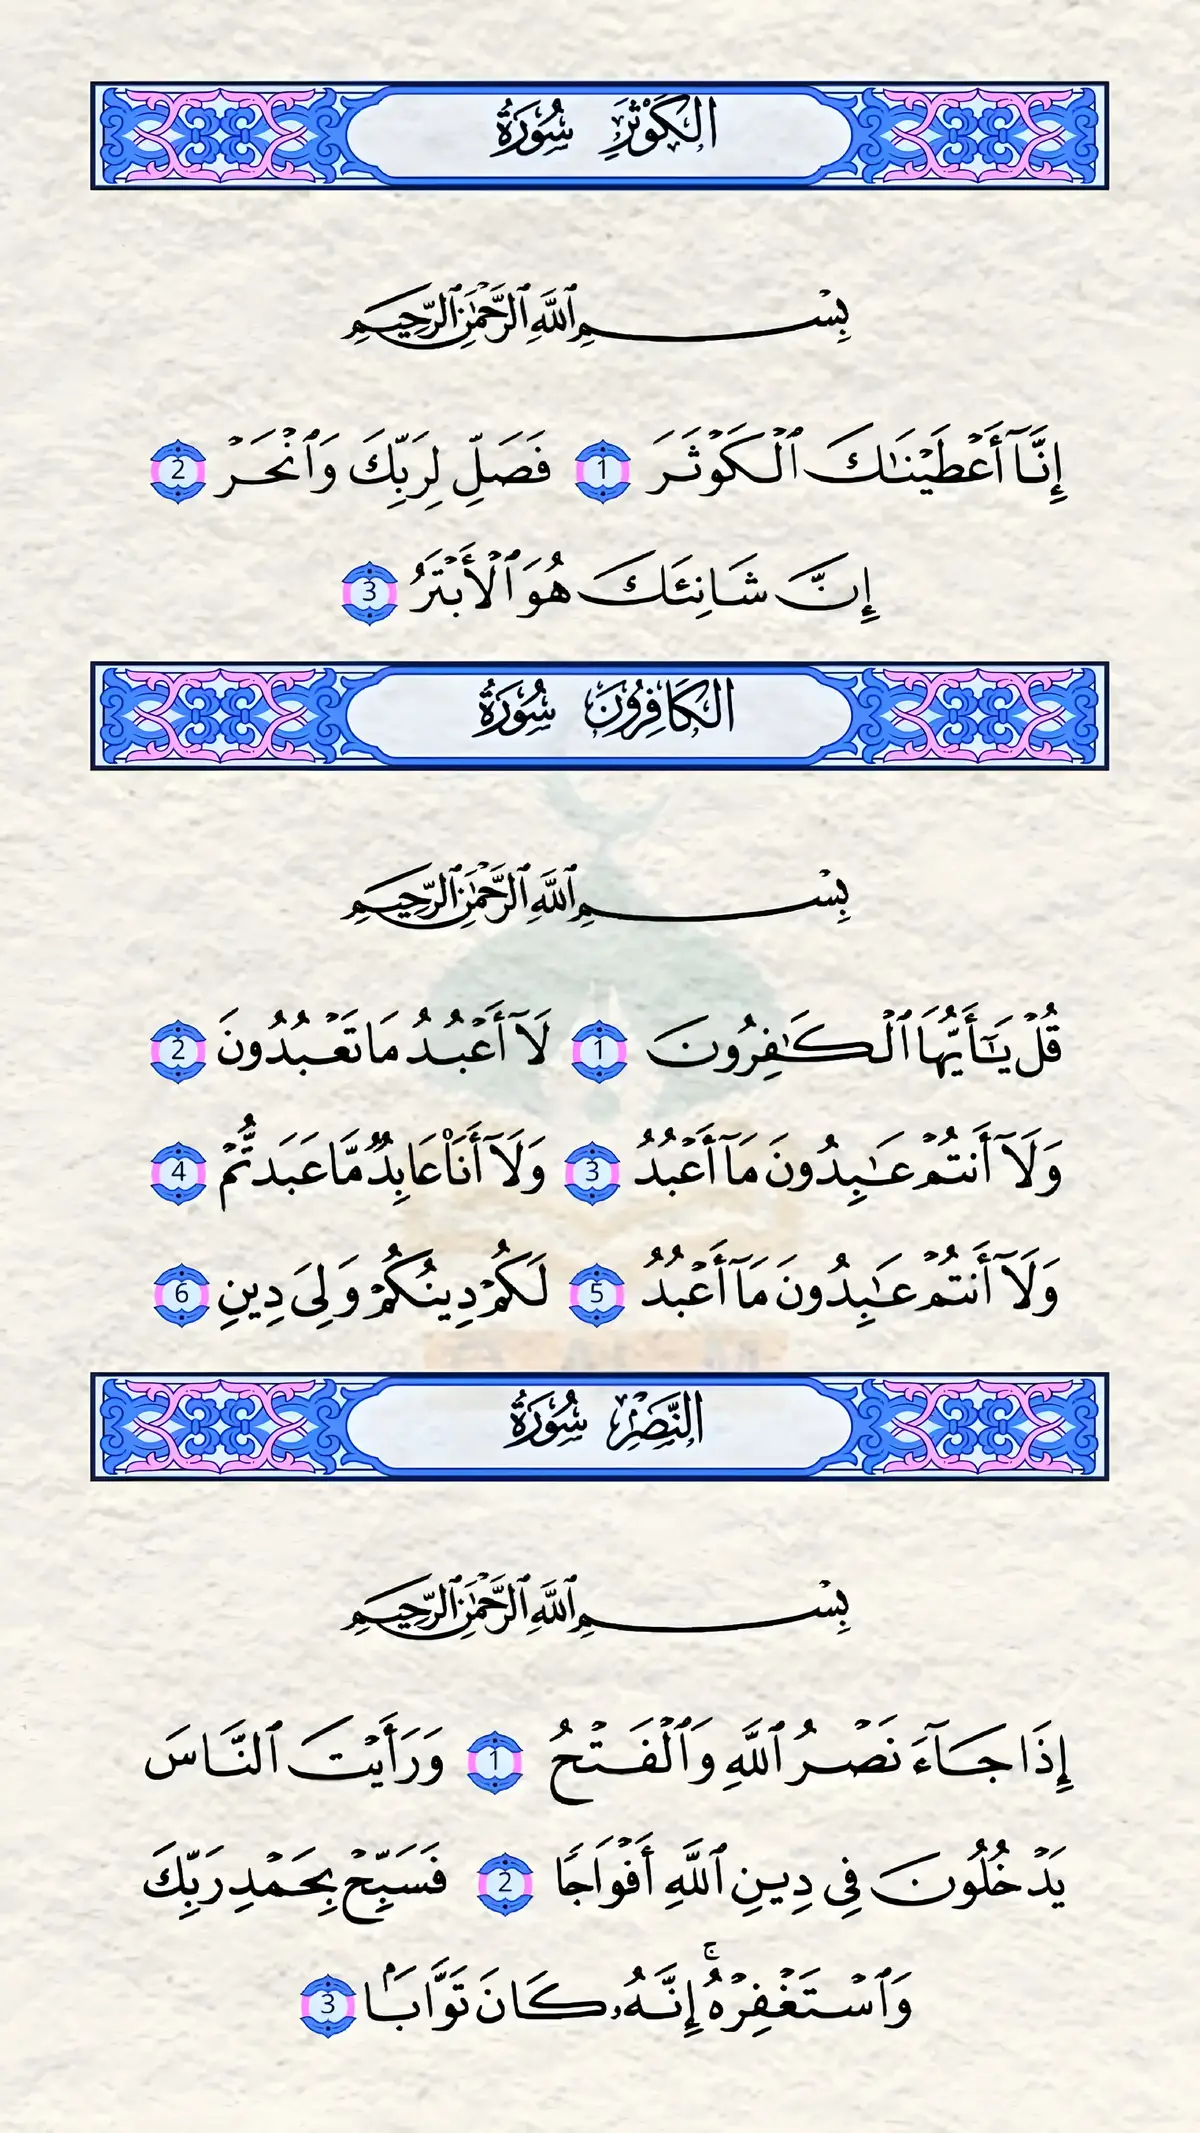 سُورَةُ الكَوْثَرِ
بِسْمِ ٱللَّهِ ٱلرَّحْمَٰنِ ٱلرَّحِيمِ
إِنَّآ أَعْطَيْنَٰكَ ٱلْكَوْثَرَ 1 فَصَلِّ لِرَبِّكَ وَٱنْحَرْ 2
إِنَّ شَانِئَكَ هُوَ ٱلْأَبْتَرُ 3
سُورَةُ الكَافِرُونَ
بِسْمِ ٱللَّهِ ٱلرَّحْمَٰنِ ٱلرَّحِيمِ
قُلْ يَٰٓأَيُّهَا ٱلْكَٰفِرُونَ 1 لَآ أَعْبُدُ مَا تَعْبُدُونَ 2
وَلَآ أَنتُمْ عَٰبِدُونَ مَآ أَعْبُدُ 3 وَلَآ أَنَا۠ عَابِدٌ مَّا عَبَدتُّمْ 4
وَلَآ أَنتُمْ عَٰبِدُونَ مَآ أَعْبُدُ 5 لَكُمْ دِينُكُمْ وَلِىَ دِينِ 6
سُورَةُ النَّصْرِ
بِسْمِ ٱللَّهِ ٱلرَّحْمَٰنِ ٱلرَّحِيمِ
إِذَا جَآءَ نَصْرُ ٱللَّهِ وَٱلْفَتْحُ 1 وَرَأَيْتَ ٱلنَّاسَ
يَدْخُلُونَ فِى دِينِ ٱللَّهِ أَفْوَاجًا 2 فَسَبِّحْ بِحَمْدِ رَبِّكَ
وَٱسْتَغْفِرْهُ ۚ إِنَّهُۥ كَانَ تَوَّابَۢا 3